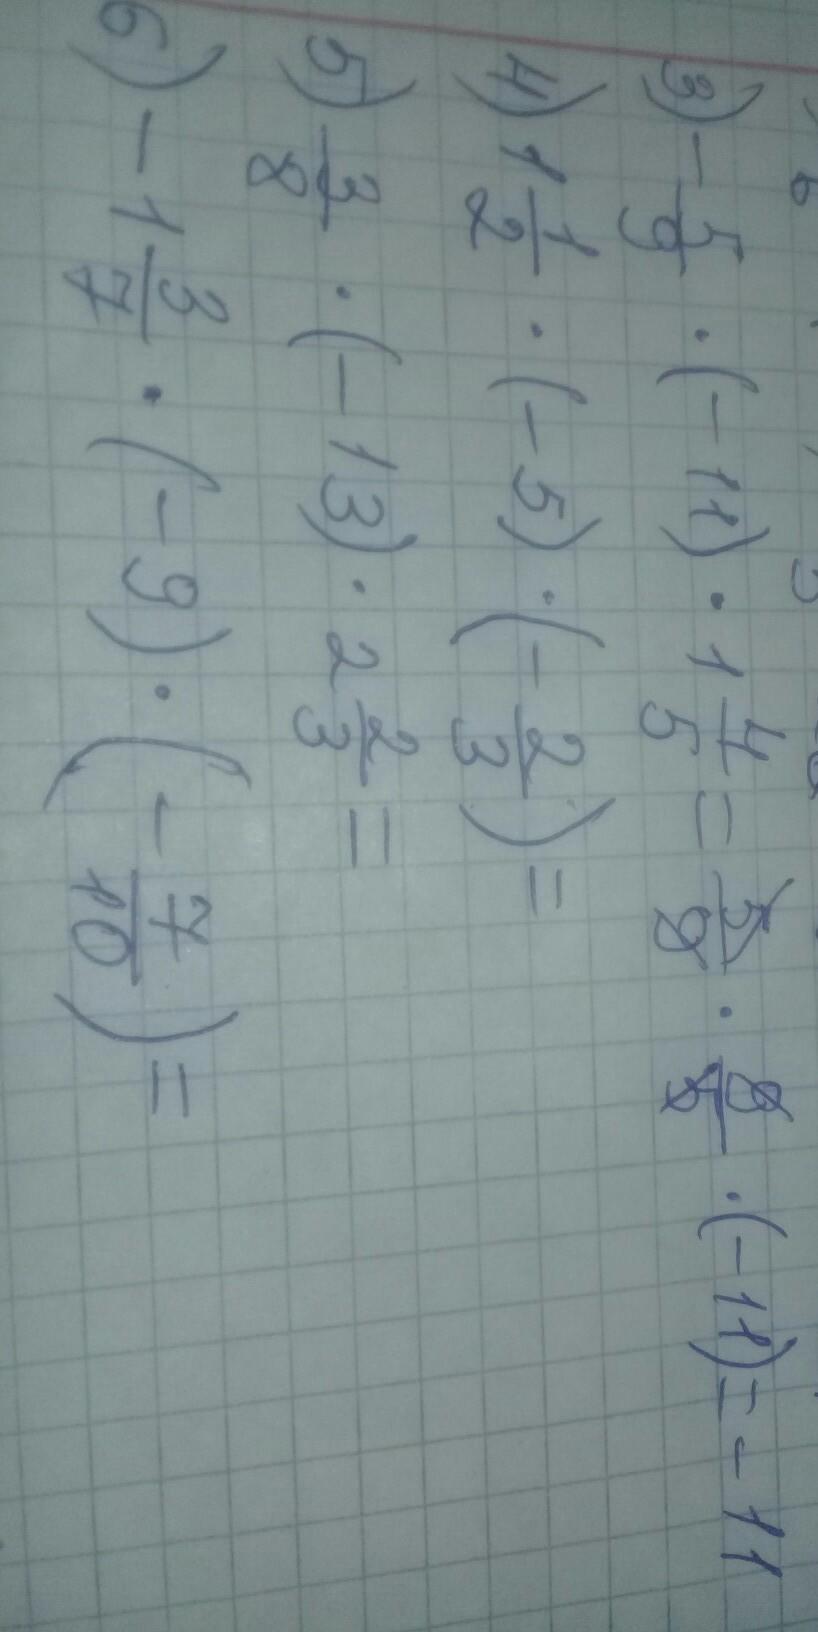 3) - 5/9 · (-11) · 1 4/5 = 5/9 · 9/5 · (-11) = - 11
4) 1 1/2 · (-5) · (- 2/3) =
5) 3/8 · (-13) · 2 2/3 =
6) - 1 3/7 · (-9) · (- 7/10) =